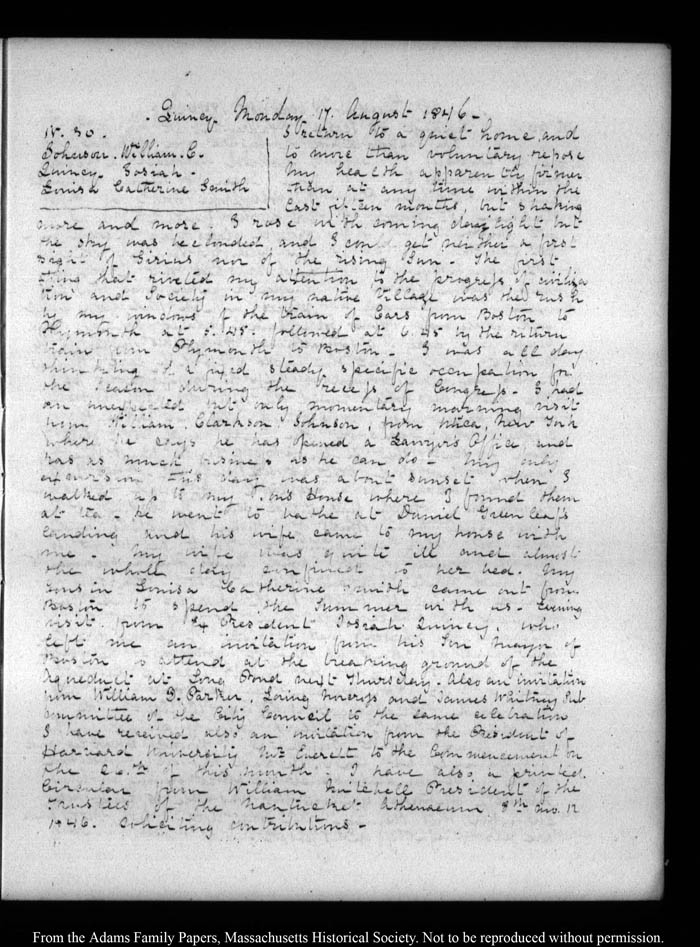 Quincy Monday 17. August 1846-
IV. 30.
Johnson. William. C.
Quincy. Josiah-
Louisa Catherine Smith
I return to a quiet home, and
to more than voluntary repose
My health apparently firmer
than at any time within the
last fifteen months, but shaking
more and more. I rose with coming daylight but
the sky was beclouded, and I could get neither a first
sight of Sirius nor of the rising Sun- The first
thing that riveted my attention to the progress of civiliza
tion and Society in my native Village was the rush
by my windows of the train of Cars from Boston to
Plymouth at 5.45. followed at 6.45 by the return
train from Plymouth to Boston- I was all day
thinking of a fixed steady, specific occupation for
the season during the recess of Congress- I had
an unexpected but only momentary morning visit
from William Clarkson Johnson, from Utica, New York
where he says he has opened a Lawyer's Office, and
has as much business as he can do- My only
excursion this day was about sunset when I
walked up to my Son's House where I found them
at tea- he went to bathe at Daniel Greenleaf's
landing and his wife came to my house with
me- My wife was quite ill and almost
the whole day confined to her bed. My
cousin Louisa Catherine Smith came out from
Boston to spend the Summer with us- Evening
visit from President Josiah Quincy, who
left me an invitation from his Son Mayor of
Boston to attend at the breaking ground of the
Aqueduct at Long Pond next Thursday. Also an invitation
from William D. Parker, Loring Norcross and James Whitney Sub
Committee of the City Council to the same celebration
I have received also an invitation from the President of
Harvard University Mr Everett to the Commencement on
the 26.th of this month. I have also a printed
Circular from William Mitchell President of the
Trustees of the Nantucket Athenaeum 8th mo. 12
1846. soliciting contributions-
From the Adams Family Papers, Massachusetts Historical Society. Not to be reproduced without permission.